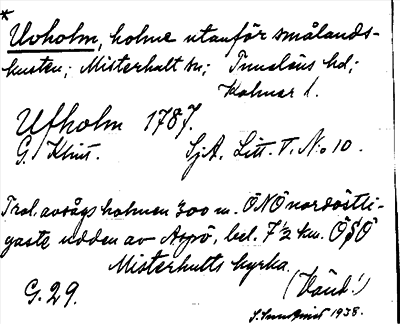 *
Uvholm, holme utanför smålands-
kusten; Misterhult sn; Tunaläns hd;
Kalmar l.
Ufholm 1787.
G. Klint. SjA. Litt. T. No 10.
Trol. avsågs holmen 300 m. ÖNÖ nordöstli-
gaste udden av Aspö, bel. 7½ km. ÖSÖ
Misterhults kyrka.
(Vänd!)
G. 29.
1938.